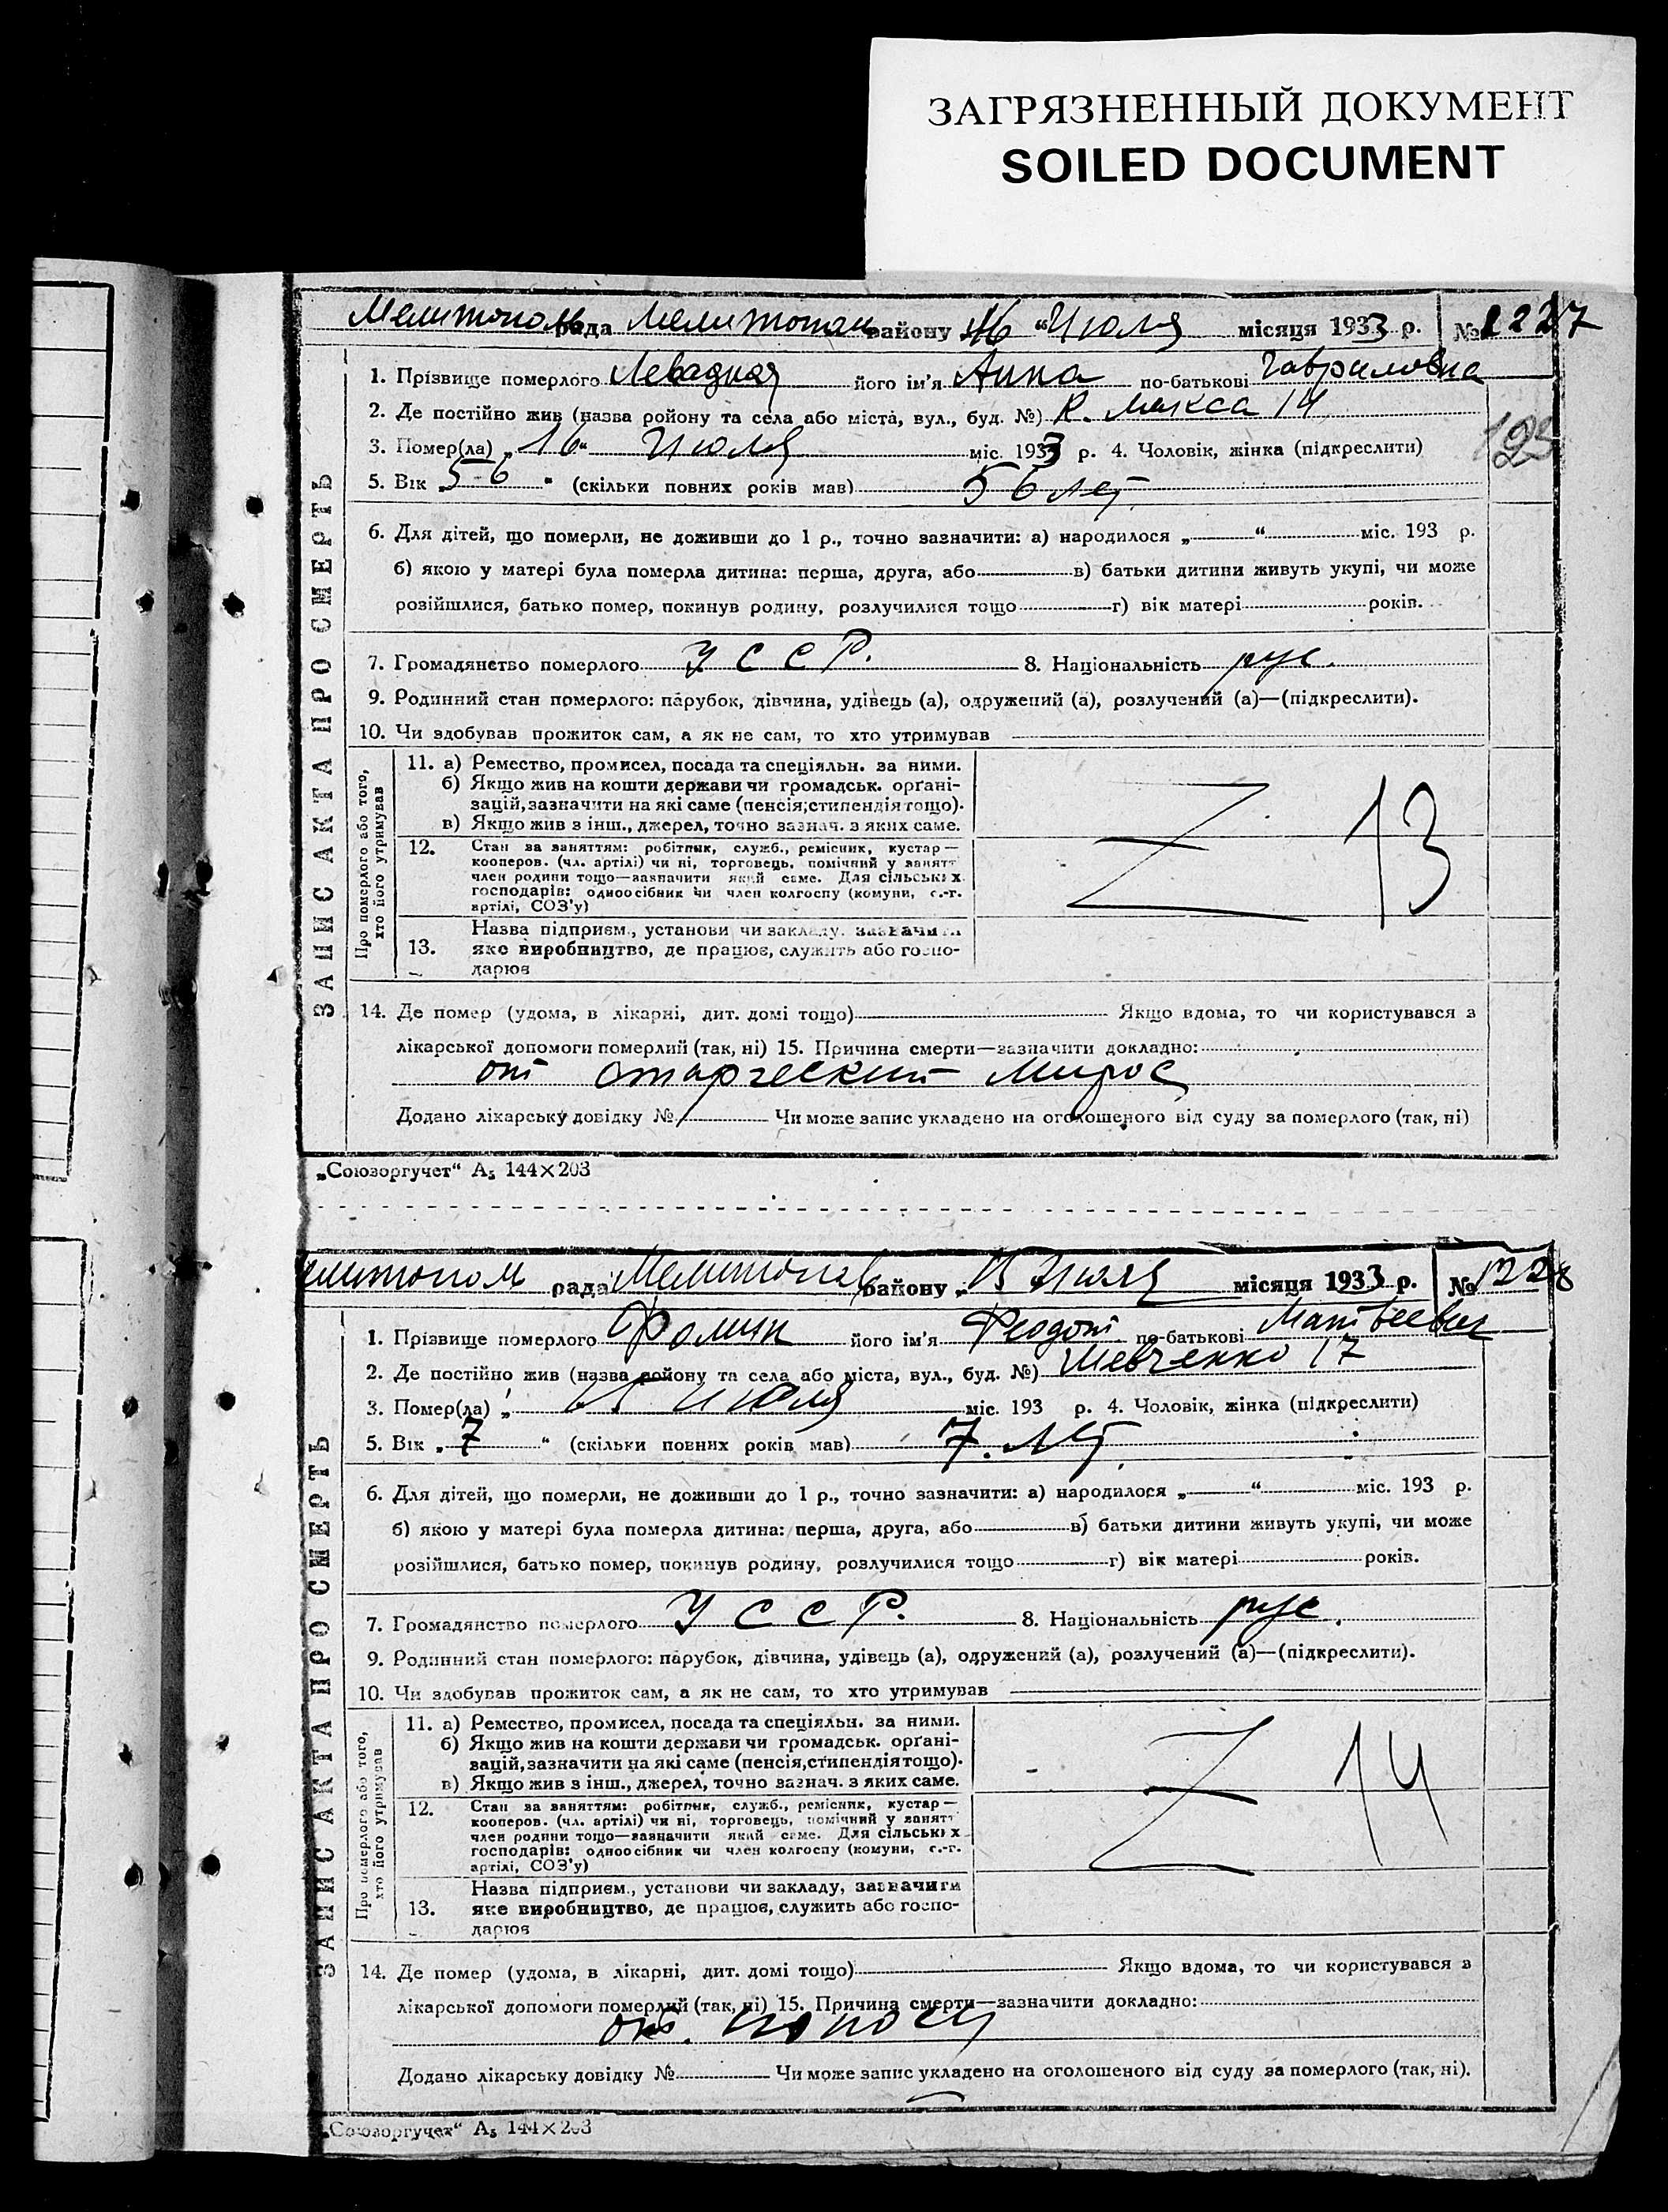 ЗАГРЯЗНЕННЫЙ ДОКУМЕНТ
SOILED DOCUMENT
рада района 16 "Июля місяця 1933 р. №1227
1. Прізвище померлого Левадная його ім'я Анна по-батькові Гавриловна
2. Де постійно жив (назва ройону та села або міста, вул., буд. №) К. Макса 14
3. Помер(ла) „16“ Июля міс. 1933 р. 4. Чоловік, жінка (підкреслити)
5. Вік „56“ (скільки повних років мав) 56 лет
6. Для дітей, що померли, не доживши до 1 р., точно зазначити: а) народилося „ “ міс. 193 р.
б) якою у матері була померла дитина: перша, друга, або в) батьки дитини живуть укупі, чи може
розійшлися, батько помер, покинув родину, розлучилися тощо г) вік матері років.
7. Громадянство померлого УССР. 8. Національність рус.
9. Родинний стан померлого: парубок, дівчина, удівець (а), одружений (а), розлучений (а)—(підкреслити).
10. Чи здобував прожиток сам, а як не сам, то хто утримував
ЗАПИС АКТА ПРО СМЕРТЬ
Про померлого або того, хто його утримував
11. а) Ремество, промисел, посада та спеціяльн. за ними.
б) Якщо жив на кошти держави чи громадськ. орґані-
зацій, зазначити на які саме (пенсія, стипендія тощо).
в) Якщо жив з інш., джерел, точно зазнач. з яких саме.
12. Стан за заняттям: робітник, служб., ремісник, кустар—
кооперов. (чл. артілі) чи ні, торговець, помічний у занятт
член родини тощо—зазначити який саме. Для сільських
господарів: одноосібник чи член колгоспу (комуни, с.-г.
артілі, СОЗ'у)
13
Назва підприєм., установи чи закладу, зазначити
13. яке виробництво, де працює, служить або госпо-
дарює
14. Де помер (удома, в лікарні, дит. домі тощо) Якщо вдома, то чи користувався з
лікарської допомоги померлий (так, ні) 15. Причина смерти—зазначити докладно:
от старческий
Додано лікарську довідку № Чи може запис укладено на оголошеного від суду за померлого (так, ні)
„Союзоргучет“ А5 144×203
рада району „15 Июля місяця 1933 р. №1228
1. Прізвище померлого Фомин його ім'я Феодот по-батькові Матвеевич
2. Де постійно жив (назва ройону та села або міста, вул., буд. №) Шевченко 17
3. Помер(ла) „15 Июля міс. 193 р. 4. Чоловік, жінка (підкреслити)
5. Вік „7“ (скільки повних років мав) 7. лет
6. Для дітей, що померли, не доживши до 1 р., точно зазначити: а) народилося „ “ міс. 193 р.
б) якою у матері була померла дитина: перша, друга, або в) батьки дитини живуть укупі, чи може
розійшлися, батько помер, покинув родину, розлучилися тощо г) вік матері років.
7. Громадянство померлого УССР. 8. Національність рус.
9. Родинний стан померлого: парубок, дівчина, удівець (а), одружений (а), розлучений (а)—(підкреслити).
10. Чи здобував прожиток сам, а як не сам, то хто утримував
ЗАПИС АКТА ПРО СМЕРТЬ
Про померлого або того, хто його утримував
11. а) Ремество, промисел, посада та спеціяльн. за ними.
б) Якщо жив на кошти держави чи громадськ. орґані-
зацій, зазначити на які саме (пенсія, стипендія тощо).
в) Якщо жив з інш., джерел, точно зазнач. з яких саме.
12. Стан за заняттям: робітник, служб., ремісник, кустар—
кооперов. (чл. артілі) чи ні, торговець, помічний у занятт
член родини тощо—зазначити який саме. Для сільських
господарів: одноосібник чи член колгоспу (комуни, с.-г.
артілі, СОЗ'у)
14
Назва підприєм., установи чи закладу, зазначити
13. яке виробництво, де працює, служить або госпо-
дарює
14. Де помер (удома, в лікарні, дит. домі тощо) Якщо вдома, то чи користувався з
лікарської допомоги померлий (так, ні) 15. Причина смерти—зазначити докладно:
от. поносу
Додано лікарську довідку № Чи може запис укладено на оголошеного від суду за померлого (так, ні).
„Союзоргучет“ А5 144×203